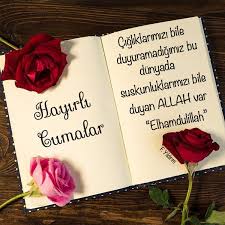 Hayırlı
Cumalar
Çığlıklarımızı bile
duyuramadığımız bu
dünyada
suskunluklarımızı bile
duyan ALLAH var
"Elhamdülillah"
F. Yıldırım